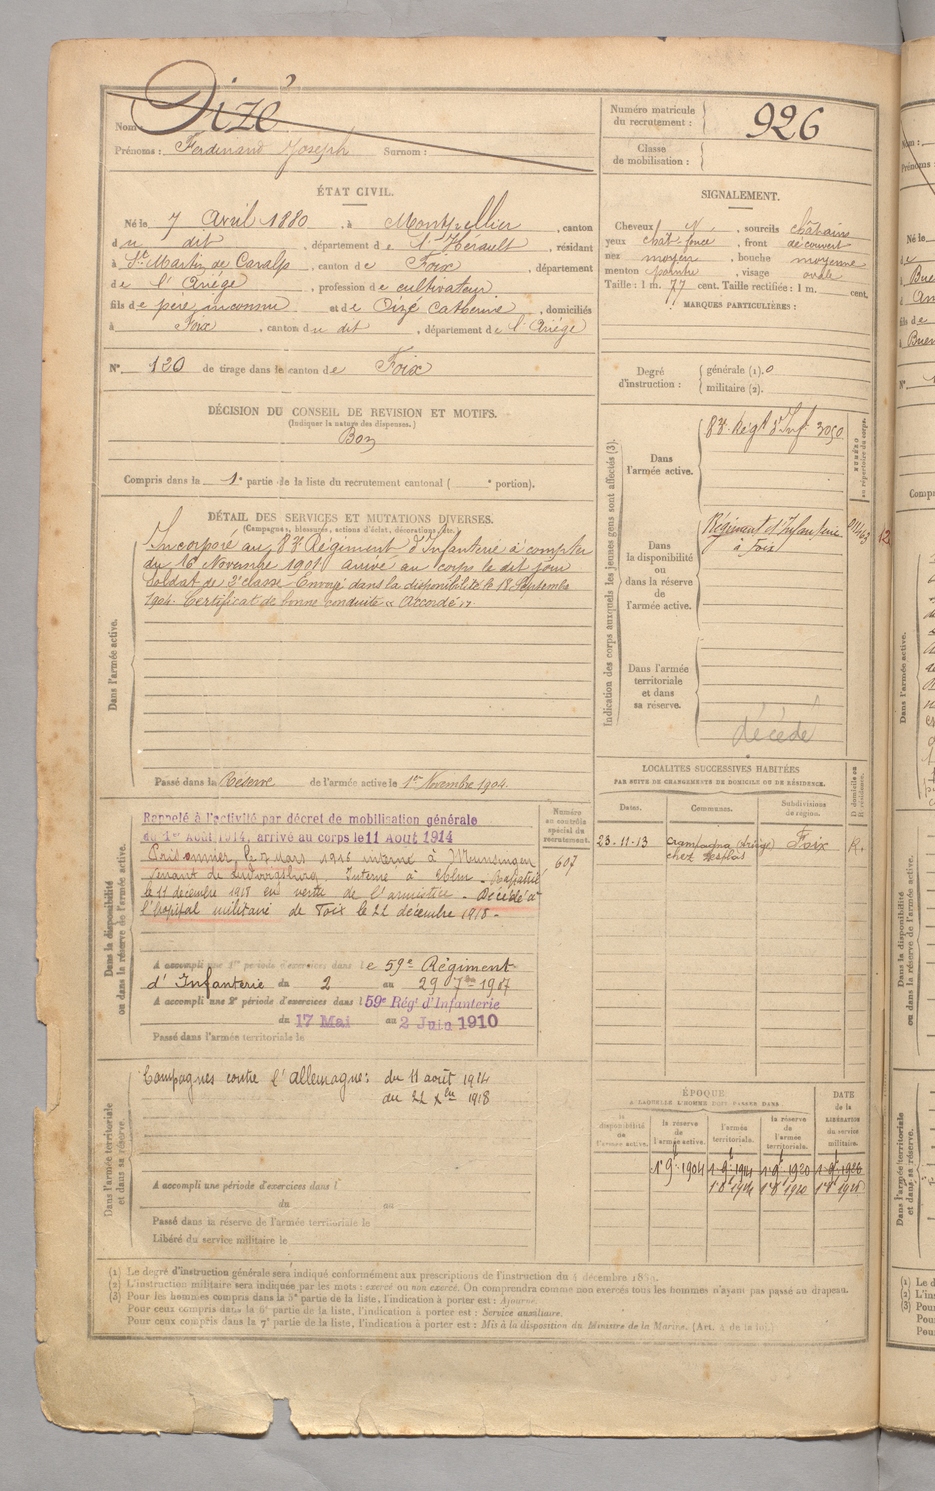 Nom Dizé
Prénoms : Ferdinand Joseph Surnom :
ÉTAT CIVIL.
Né le 7 Avril 1880, à Montpellier, canton
du dit, département de l'Hérault, résidant
à St Martin de Caralp, canton de Foix, département
de l'Ariége, profession de cultivateur
fils de pere inconnu et de Dizé Catherine, domiciliés
à Foix, canton du dit, département de l'Ariége
N° 120 de tirage dans le canton de Foix
DÉCISION DU CONSEIL DE REVISION ET MOTIFS.
(Indiquer la nature des dispenses.)
Bon
Compris dans la 1e partie de la liste du recrutement cantonal ( e portion).
DÉTAIL DES SERVICES ET MUTATIONS DIVERSES.
(Campagnes, blessures, actions d'éclat, décorations, etc.)
Dans l'armée active.
Incorporé au 83e Régiment d'Infanterie à compter
du 16 Novembre 1901 arrivé au corps le dit jour
Soldat de 2e classe Envoyé dans la disponibilité le 18 Septembre
1904. Certificat de bonne conduite « Accordé ».
Passé dans la Réserve de l'armée active le 1er Novembre 1904.
Dans la disponibilité
ou dans la réserve de l'armée active.
Rappelé à l'activité par décret de mobilisation générale
du 1er Août 1914, arrivé au corps le 11 Août 1914
Prisonnier, le 7 mars 1916 interné à Munsingen
venant de Ludwigsburg. Interné à Ulm. Rapatrié
le 11 décembre 1918 en vertu de l'armistice - Décédé à
l'hopital militaire de Foix le 22 décembre 1918 -
Numéro
au contrôle
spécial du
recrutement.
607
A accompli une 1re période d'exercices dans le 59e Régiment
d'Infanterie du 2 au 29 7bre 1907
A accompli une 2e période d'exercices dans l 59e Régt d'Infanterie
du 17 Mai au 2 Juin 1910
Passé dans l'armée territoriale le
Dans l'armée territoriale
et dans sa réserve.
Campagnes contre l'allemagne : du 11 août 1914
du 22 Xbre 1918
A accompli une période d'exercices dans l
du au
Passé dans la réserve de l'armée territoriale le
Libéré du service militaire le
Numéro matricule
du recrutement :
926
Classe
de mobilisation :
SIGNALEMENT.
Cheveux N, sourcils châtains
yeux chât-foncé, front découvert
nez moyen, bouche moyenne
menton pointu, visage ovale
Taille : 1 m. 77 cent. Taille rectifiée : 1 m. cent.
MARQUES PARTICULIÈRES :
Degré
d'instruction :
générale (1). 0
militaire (2).
Indication des corps auxquels les jeunes gens sont affectés (3).
Dans
l'armée active.
83e Régt d'Inf. 3050
NUMÉRO
au répertoire du corps.
Dans
la disponibilité
ou
dans la réserve
de
l'armée active.
Régiment d'Infanterie
à Foix
Dans l'armée
territoriale
et dans
sa réserve.
décédé
LOCALITES SUCCESSIVES HABITÉES
PAR SUITE DE CHANGEMENTS DE DOMICILE OU DE RÉSIDENCE.
Dates. Communes. Subdivisions
de région.
D domicile ou
R résidence.
23-11-13 Campagna (Ariège) Foix R.
chez
ÉPOQUE
A LAQUELLE L'HOMME DOIT PASSER DANS
la
disponibilité
de
l'armée active.
la réserve
de
l'armée active.
l'armée
territoriale.
la réserve
de
l'armée
territoriale.
DATE
de la
LIBÉRATION
du service
militaire.
1er 9bre 1904 1er 9bre 1914 1er 9bre 1920 1er 9bre 1926
(1) Le degré d'instruction générale sera indiqué conformément aux prescriptions de l'instruction du 4 décembre 1889.
(2) L'instruction militaire sera indiquée par les mots : exercé ou non exercé. On comprendra comme non exercés tous les hommes n'ayant pas passé au drapeau.
(3) Pour les hommes compris dans la 5e partie de la liste, l'indication à porter est : Ajourné.
Pour ceux compris dans la 6e partie de la liste, l'indication à porter est : Service auxiliaire.
Pour ceux compris dans la 7e partie de la liste, l'indication à porter est : Mis à la disposition du Ministre de la Marine. (Art. 4 de la loi.)